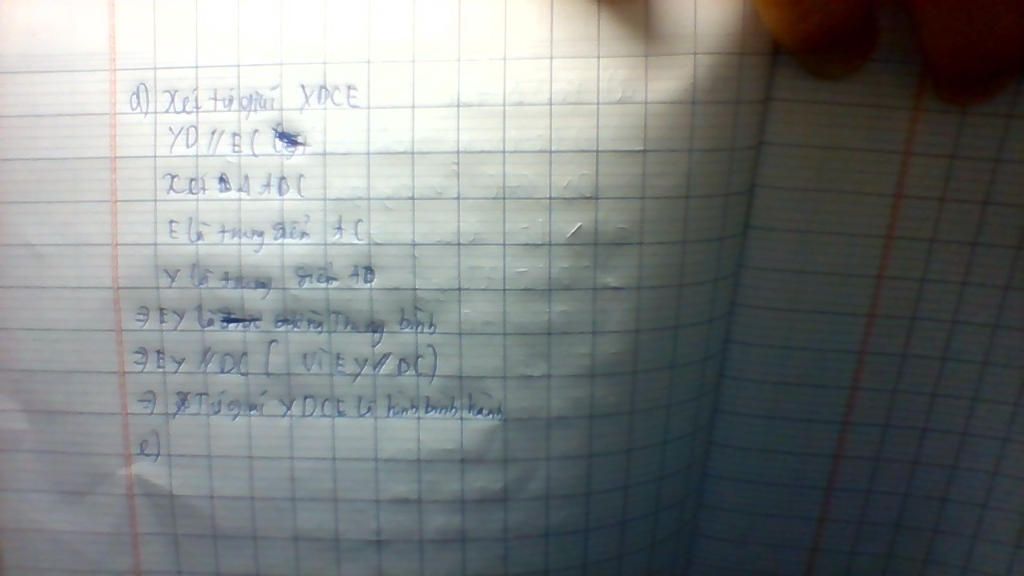 d) Xét tứ giác YDCE
YD // EC
Xét Δ ADC
E là trung điểm AC
Y là trung điểm AD
⇒ EY là Trung bình
⇒ EY // DC ( vì EY // DC)
⇒ Tứ giác YDCE là hình bình hành
e)